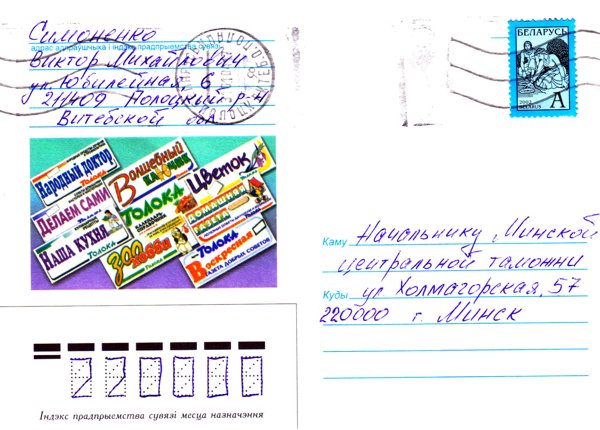 Симоненко
адрас адпраўшчыка і індэкс прадпрыемства сувязі
Виктор Михайлович
ул. Юбилейная, 6
211409 Полоцкий р-н
Витебской обл
БЕЛАРУСЬ
2002
BELARUS
А
Народный доктор
Толока
Делаем сами
Толока
Наша кухня
Толока
Волшебный
клубчик
Толока
Зоо
Толока
Цветок
Толока
Домашняя
газета
Толока
Воскресная
газета добрых советов
Каму Начальнику Минской
центральной таможни
Куды ул Холмагорская, 57
220000 г. Минск
220000
Індэкс прадпрыемства сувязі месца назначэння